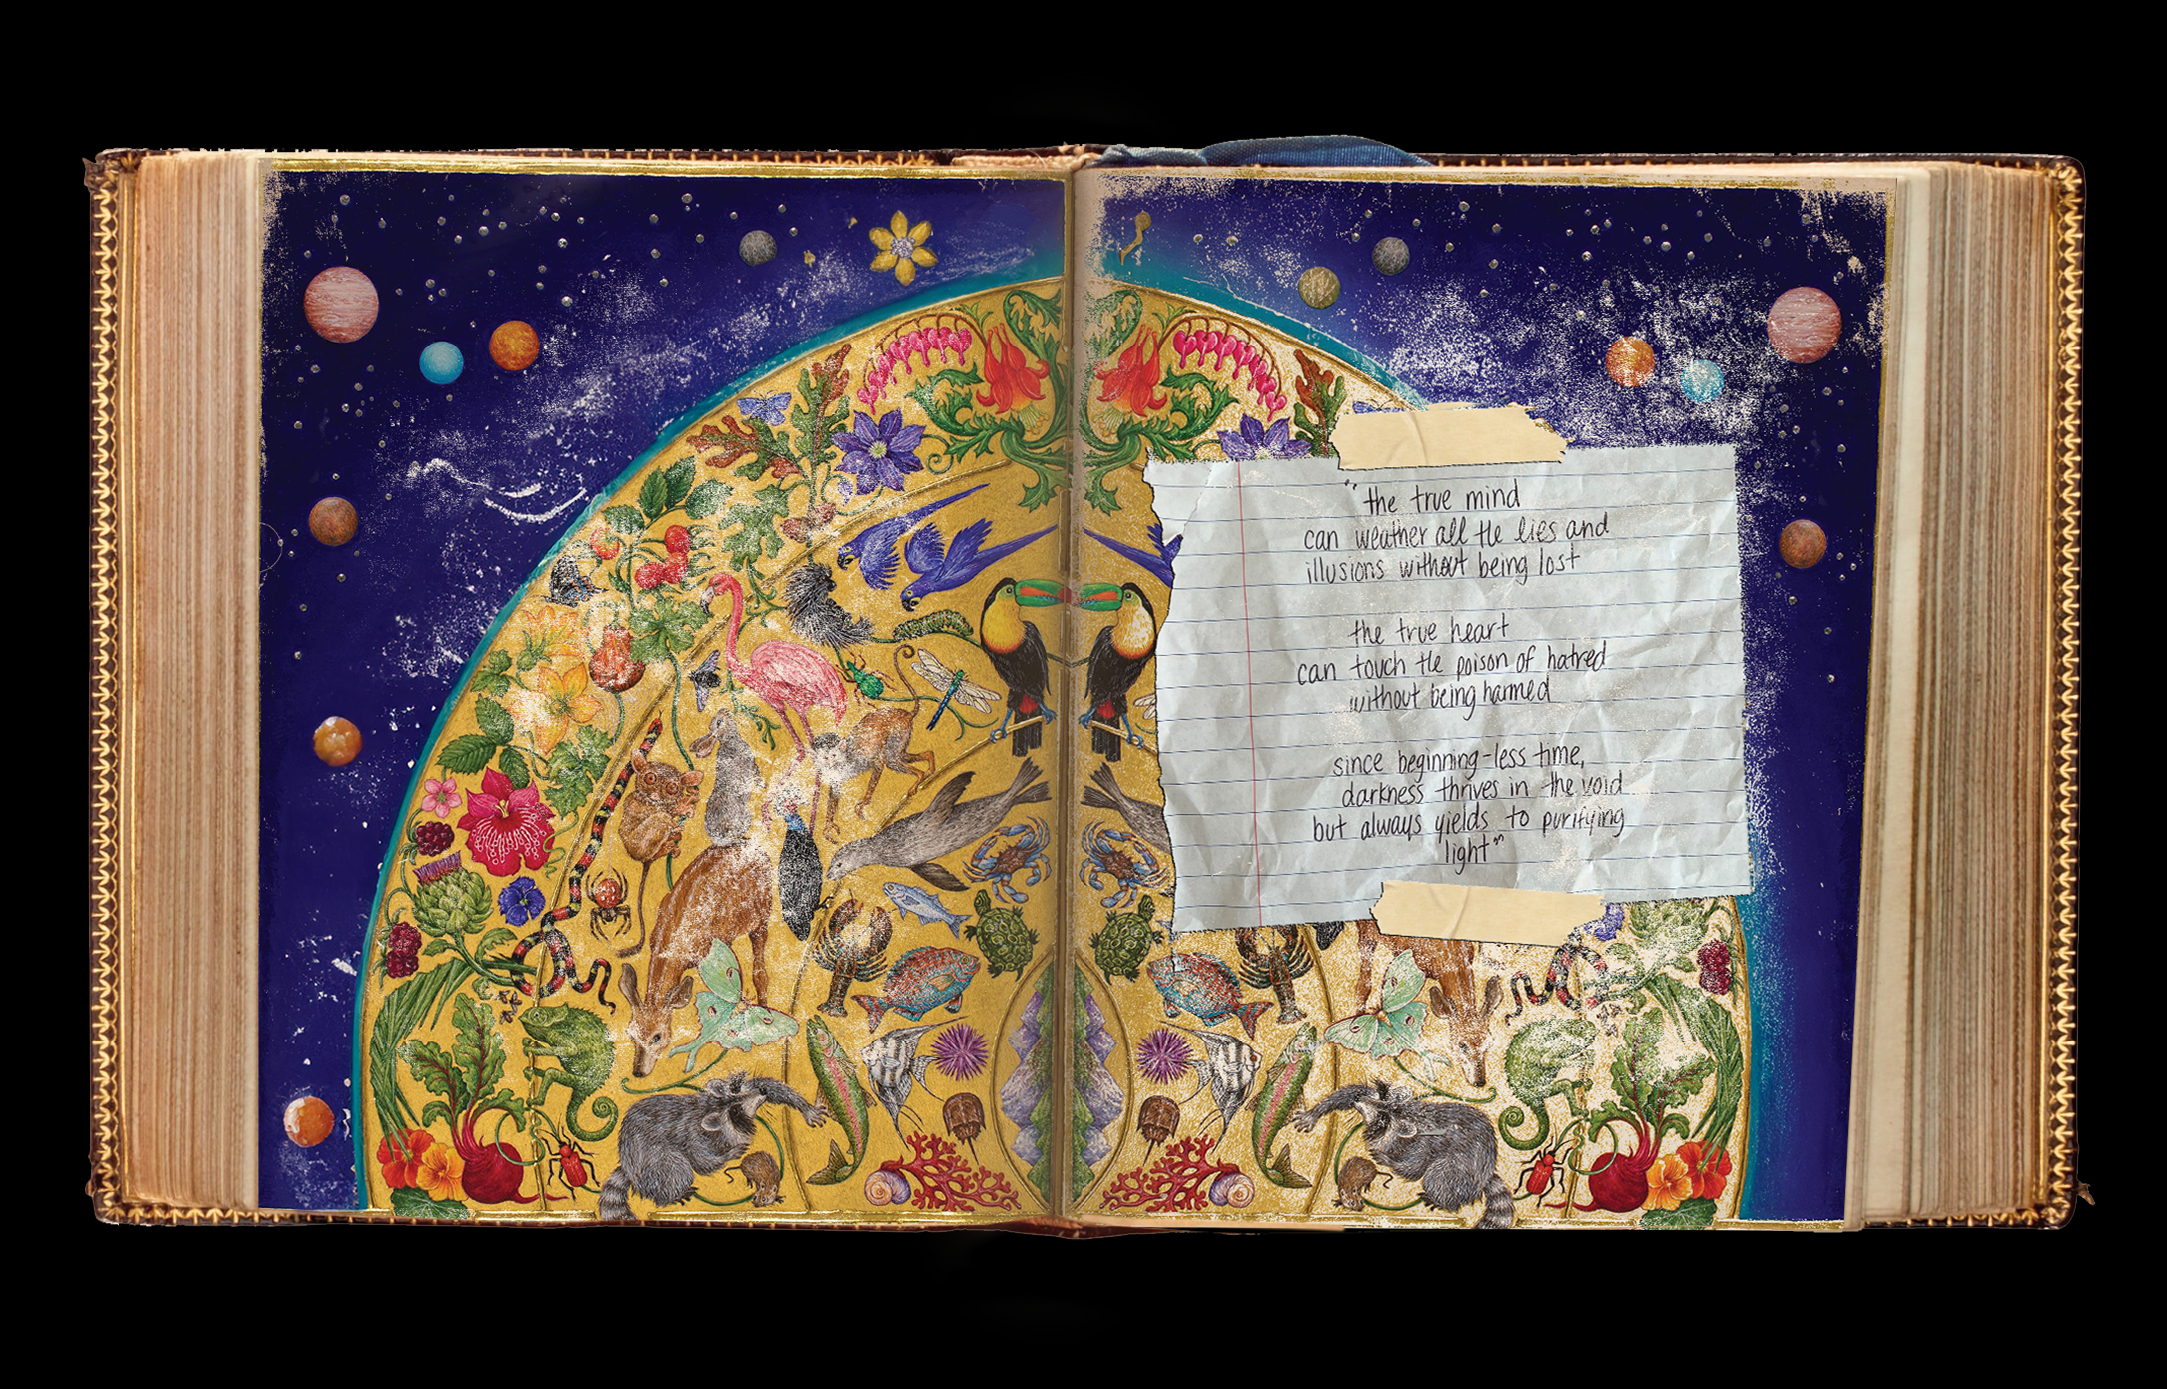 "the true mind
can weather all the lies and
illusions without being lost
the true heart
can touch the poison of hatred
without being harmed
since beginning-less time,
darkness thrives in the void
but always yields to purifying
light"